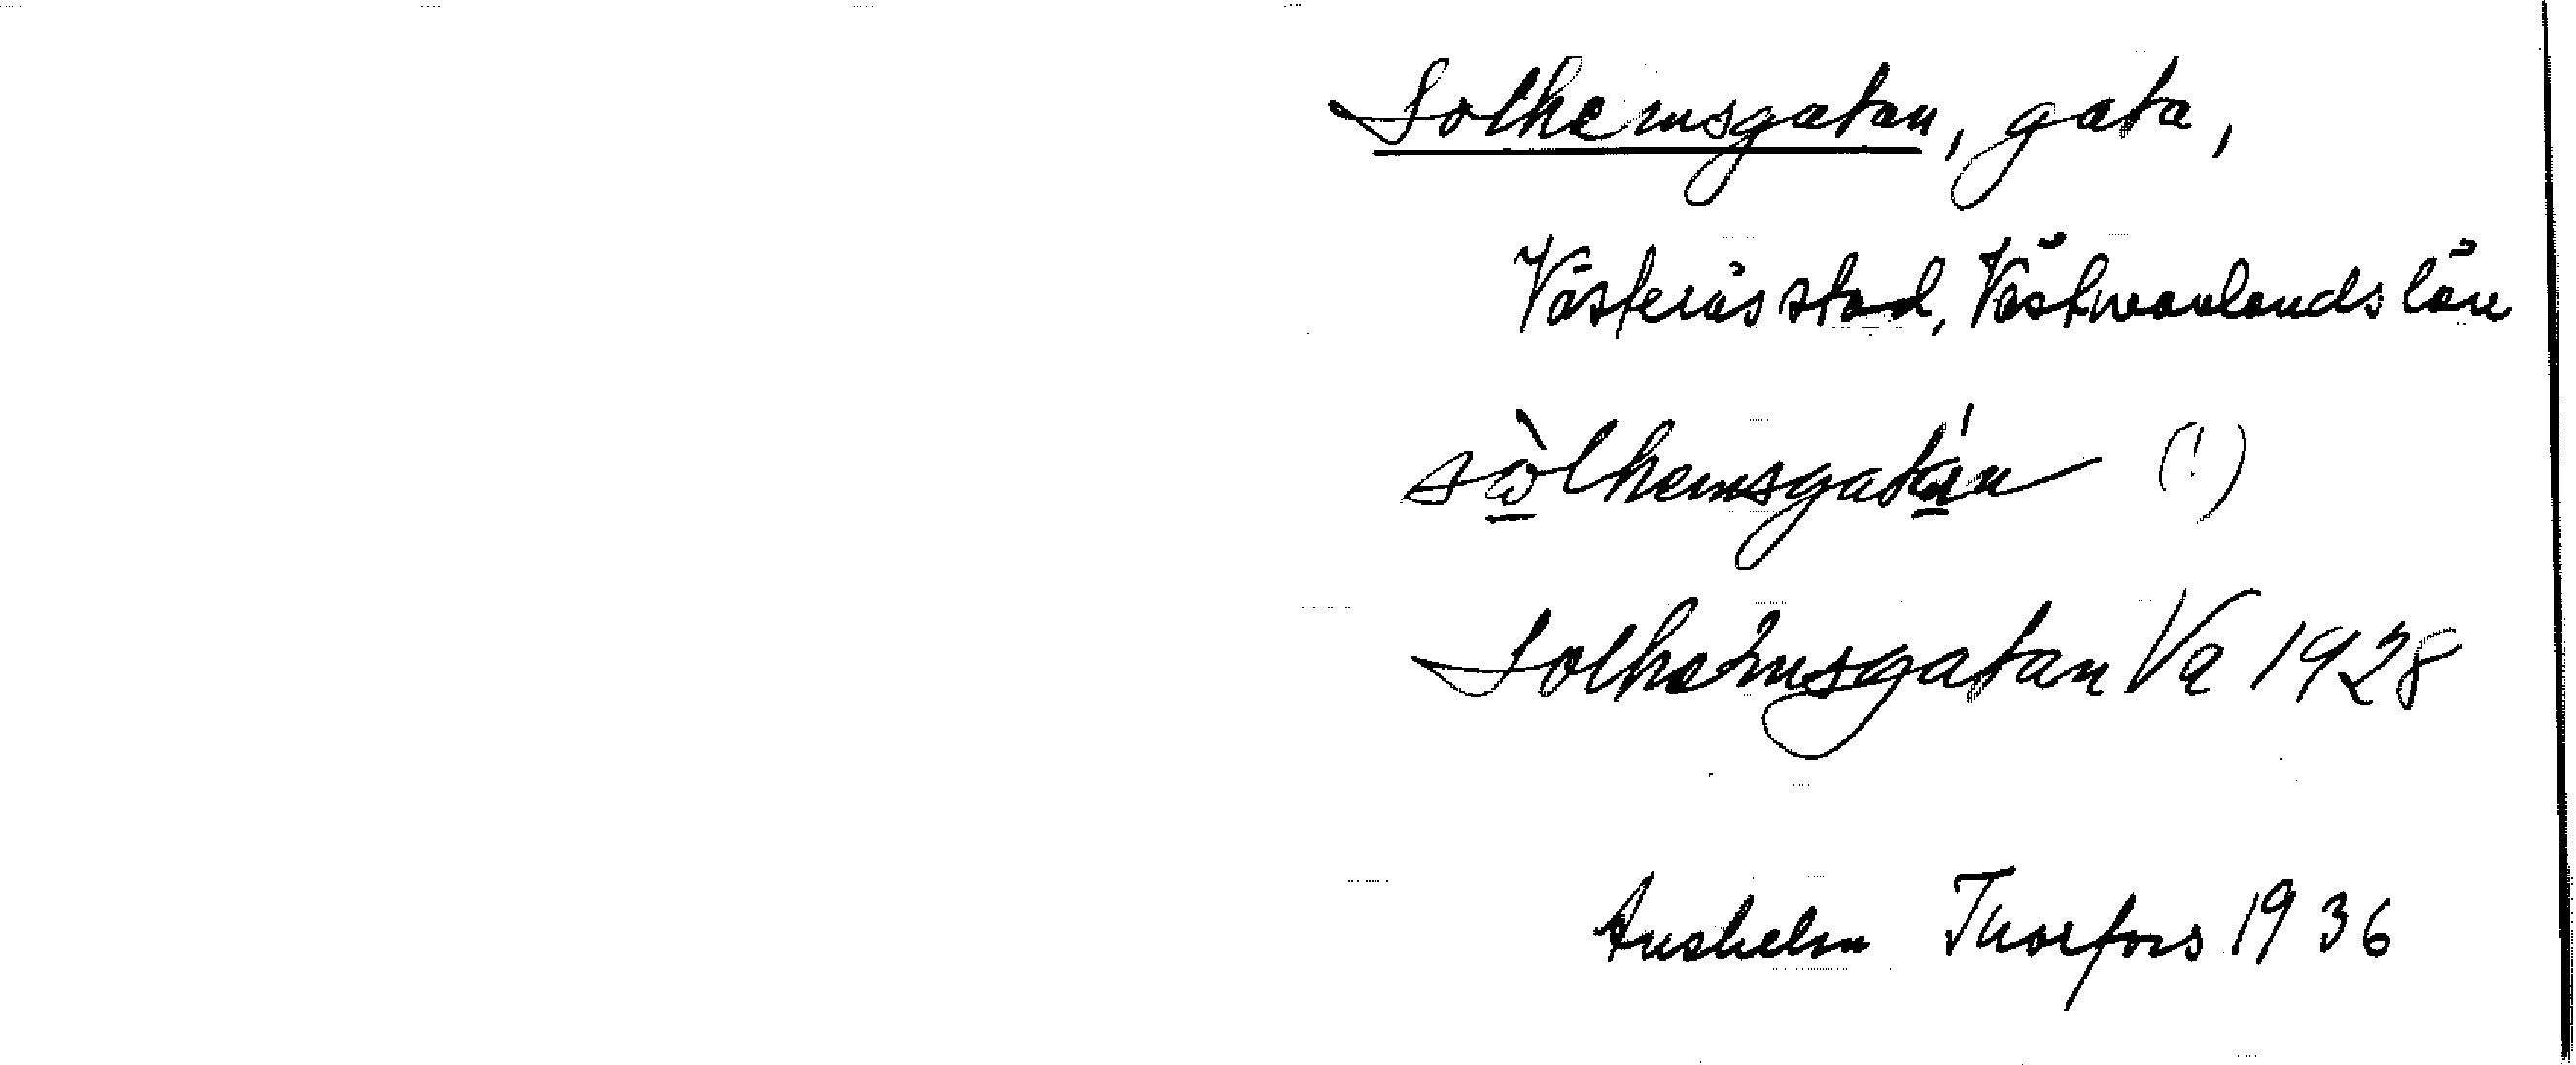 Solhemsgatan, gata,
Västerås stad, Västmanlands län
sὼlhemsgatán (!)
Solhemsgatan Va 1928
Anshelm Thorfors 1936